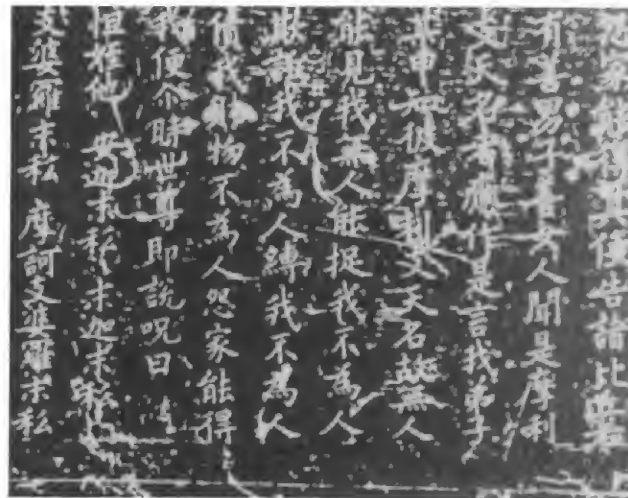 怨家能得其便告諸比丘若
有善男子善女人聞是摩利
支天名者應作是言我弟子
某甲知彼摩利支天名故無人
能見我無人能捉我不為人
欺誑我不為人縛我不為人
債我財物不為人怨家能得
我便尒時世尊即說呪曰
怛姪他 迦末私 末迦末私
支婆羅末私 摩訶支婆羅末私